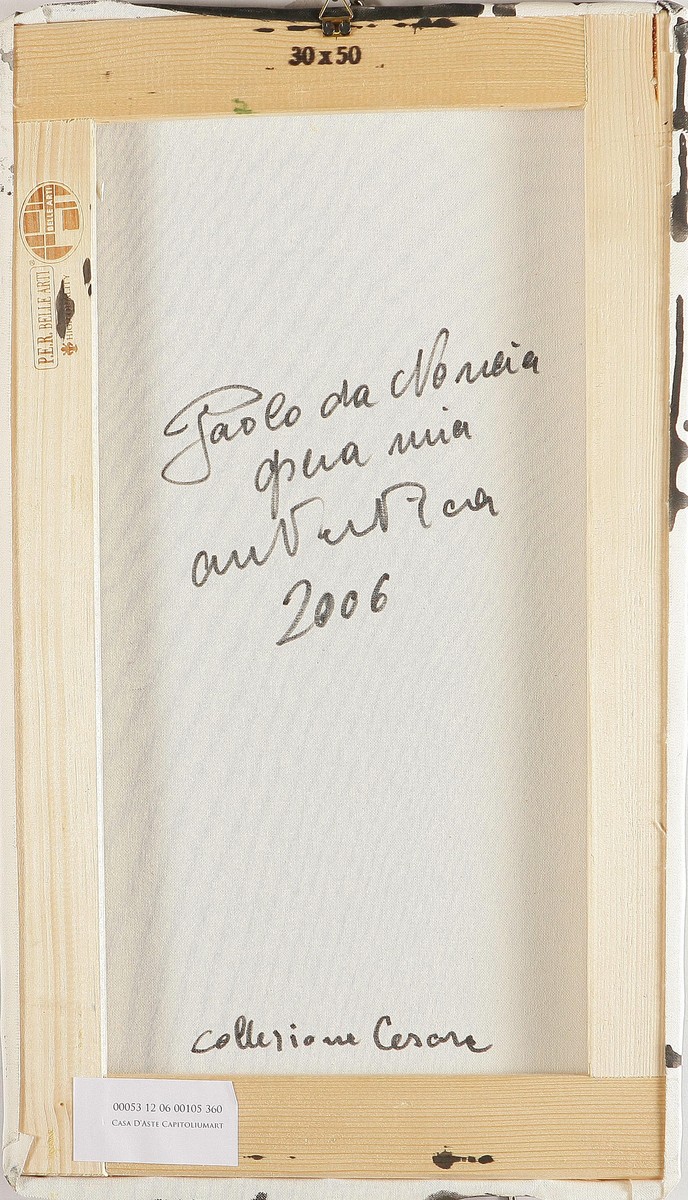 30 x 50
BELLE ARTI
P.E.R. BELLE ARTI
Paolo da Norcia
opera mia
autentica
2006
collezione Cesare
00053 12 06 00105 360
CASA D'ASTE CAPITOLIUMART